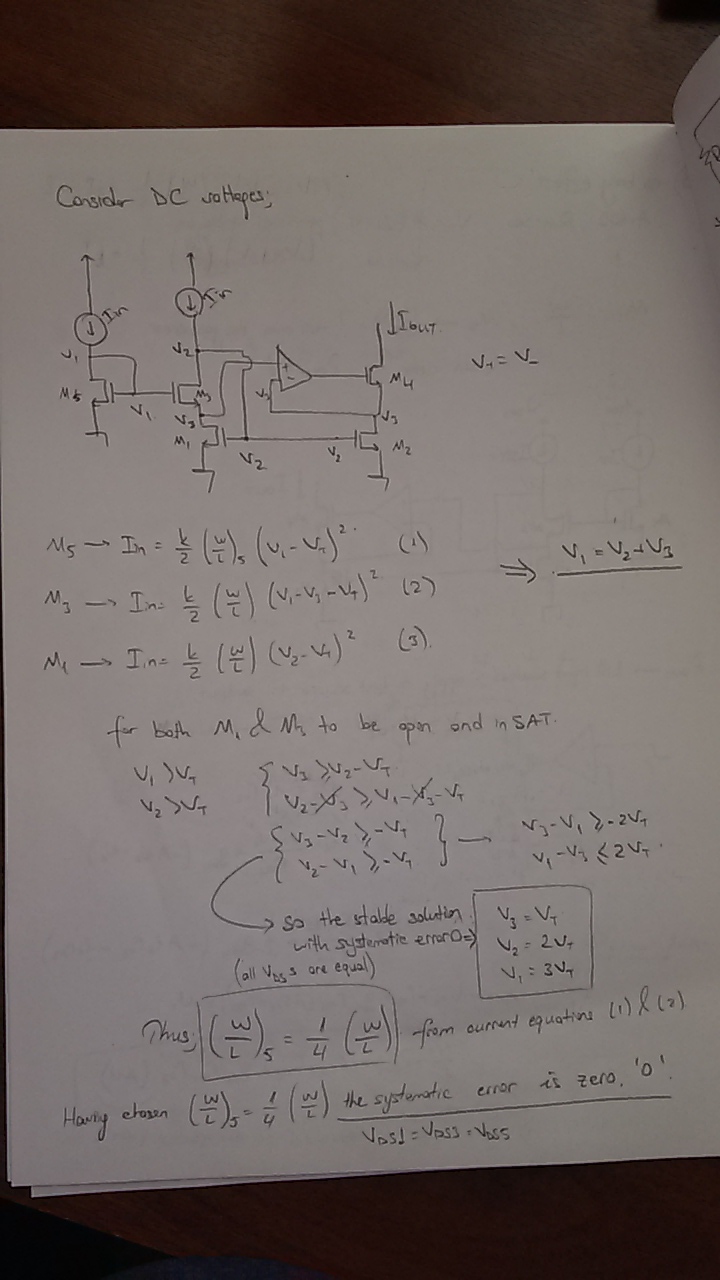 Consider DC voltages;
Iin
Iin
IOUT
V1
V2
M5
M3
V1
V3
M1
V2
+
-
V3
M4
V3
V2
M2
V+ = V-
M5 → Iin = k/2 (W/L)5 (V1 - VT)² (1)
M3 → Iin = k/2 (W/L) (V1 - V3 - VT)² (2)
M1 → Iin = k/2 (W/L) (V2 - VT)² (3).
⇒ V1 = V2 + V3
for both M1 & M3 to be open and in SAT.
V1 > VT { V3 ≥ V2 - VT
V2 > VT V2 - V3 ≥ V1 - V3 - VT
{ V3 - V2 ≥ -VT } — V3 - V1 ≥ -2VT
V2 - V1 ≥ -VT V1 - V3 ≤ 2VT
→ So the stable solution
with systematic error 0 ⇒
(all VDS s are equal)
V3 = VT
V2 = 2VT
V1 = 3VT
Thus; (W/L)5 = 1/4 (W/L) from current equations (1) & (2)
Having chosen (W/L)5 = 1/4 (W/L) the systematic error is zero. '0'.
VDS1 = VDS3 = VDS5